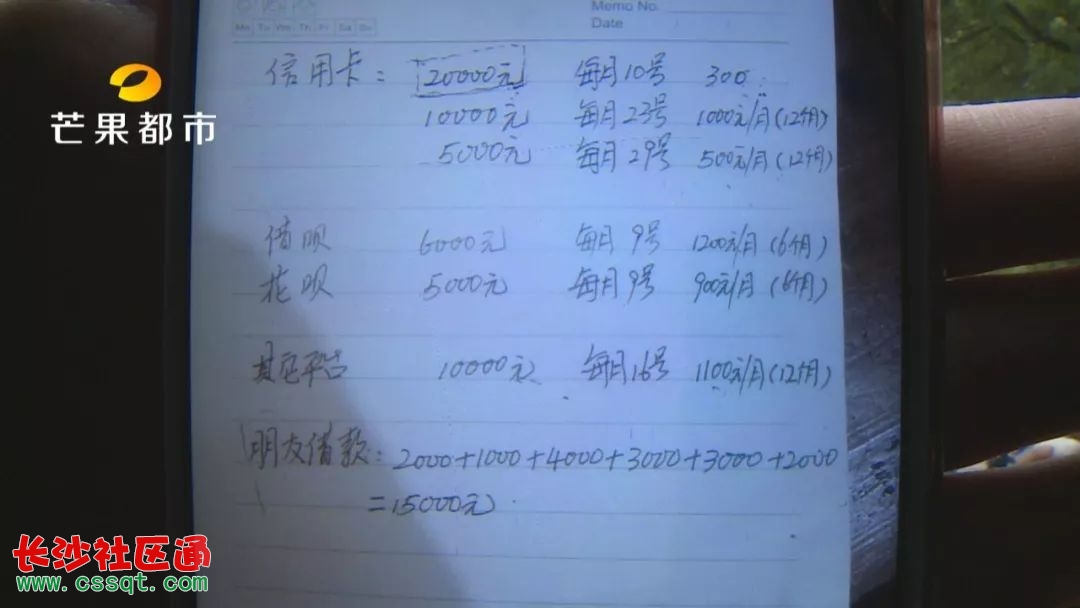 Memo No.
Date
Mo Tu We Th Fr Sa Su
信用卡: 20000元 每月10号 300
10000元 每月23号 1000元/月(12个月)
5000元 每月29号 500元/月(12个月)
芒果都市
借呗 6000元 每月9号 1200元/月(6个月)
花呗 5000元 每月9号 900元/月(6个月)
其它平台 10000元 每月16号 1100元/月(12个月)
朋友借款: 2000+1000+4000+3000+3000+2000
=15000元
长沙社区通
www.cssqt.com